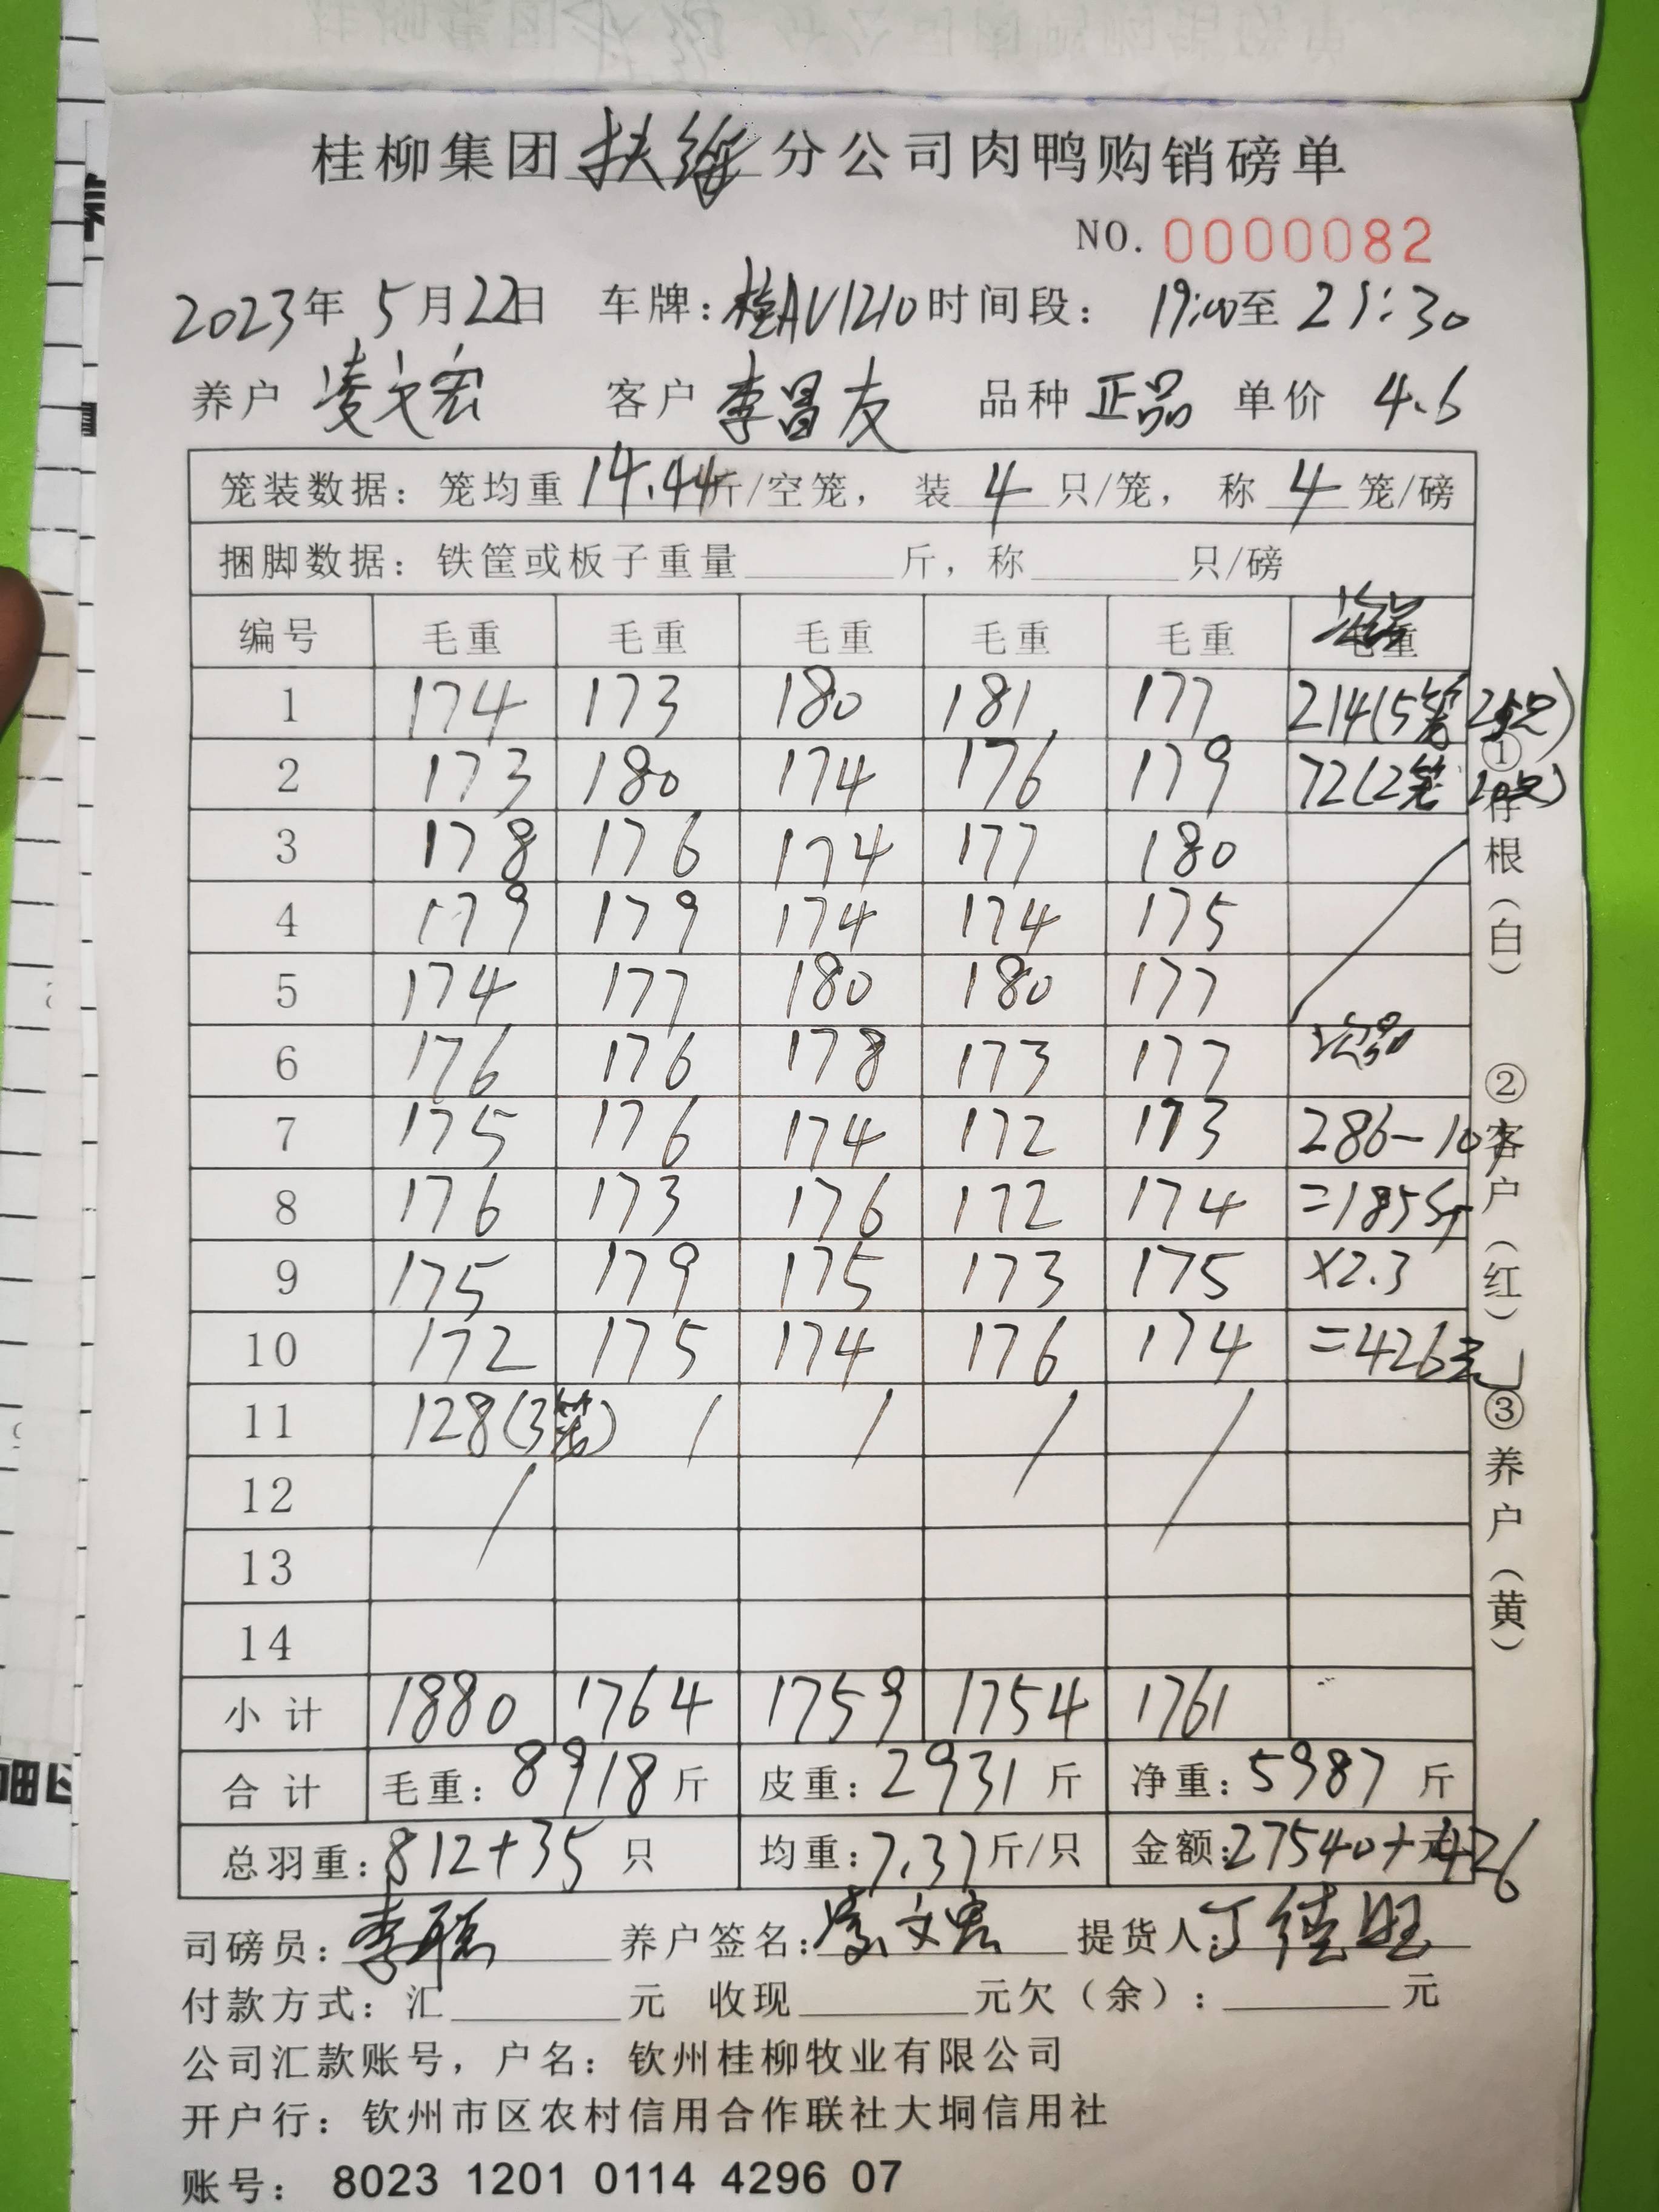 桂柳集团扶绥分公司肉鸭购销磅单
NO. 0000082
2023年 5月22日 车牌:桂AV1210时间段: 19:00至21:30
养户 凌文宏 客户 李昌友 品种 正品 单价 4.6
笼装数据: 笼均重14.44斤/空笼, 装4只/笼, 称4笼/磅
捆脚数据: 铁筐或板子重量 斤, 称 只/磅
编号 毛重 毛重 毛重 毛重 毛重 次品
1 174 173 180 181 177 214(5笼 25只)
2 173 180 174 176 179 72(2笼 10只)
3 178 176 174 177 180
4 179 179 174 174 175
5 174 177 180 180 177
6 176 176 178 173 177 次品
7 175 176 174 172 173 286-101
8 176 173 176 172 174 =185斤
9 175 179 175 173 175 ×2.3
10 172 175 174 176 174 =426元
11 128(3笼) / / / /
12 /
13
14
小计 1880 1764 1759 1754 1761
合计 毛重:8918斤 皮重:2931斤 净重:5987斤
总羽重:812+35只 均重:7.37斤/只 金额:27540+426元
①存根(白) ②客户(红) ③养户(黄)
司磅员:李聪 养户签名:凌文宏 提货人:丁佳旺
付款方式: 汇 元 收现 元欠(余): 元
公司汇款账号, 户名: 钦州桂柳牧业有限公司
开户行: 钦州市区农村信用合作联社大垌信用社
账号: 8023 1201 0114 4296 07